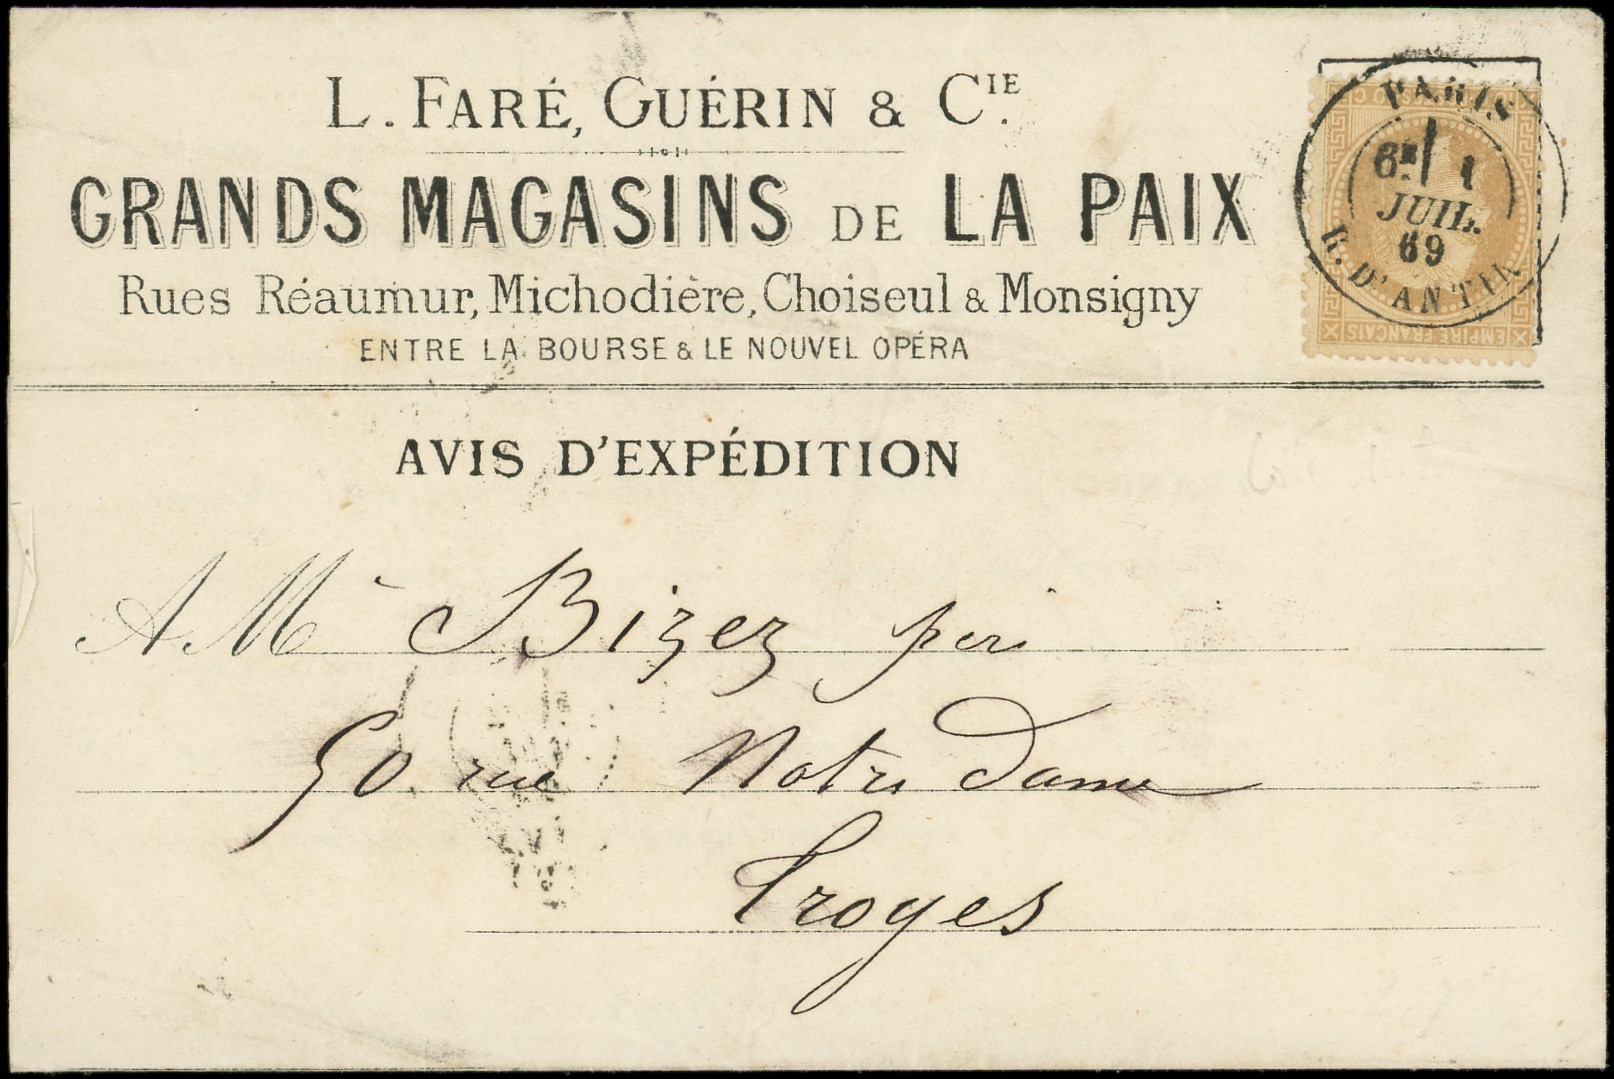 L. FARÉ, GUÉRIN & CIE.
GRANDS MAGASINS DE LA PAIX
Rues Réaumur, Michodière, Choiseul & Monsigny
ENTRE LA BOURSE & LE NOUVEL OPÉRA
PARIS
6E 1
JUIL.
69
R. D'ANTIN
EMPIRE FRANÇAIS
AVIS D'EXPÉDITION
A M Bizez père
50 rue Notre Dame
Troyes